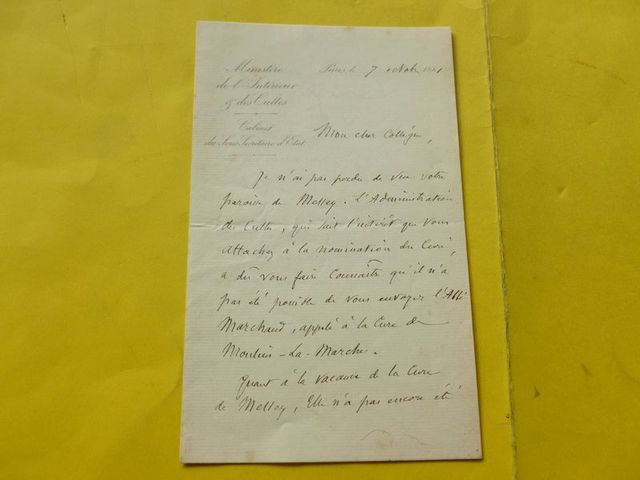 Ministère
de l'Intérieur
& des Cultes
Cabinet
du Sous Secrétaire d'Etat
Paris, le 7 octobre 1881
Mon cher Collègue,
Je n'ai pas perdu de vue votre
paroisse de Messey. L'Administration
des Cultes, qui sait l'intérêt que vous
attachez à la nomination du Curé,
a dû vous faire connaître qu'il n'a
pas été possible de vous envoyer l'Abbé
Marchand, appelé à la Cure de
Moulins-La-Marche.
Quant à la vacance de la Cure
de Messey, Elle n'a pas encore été